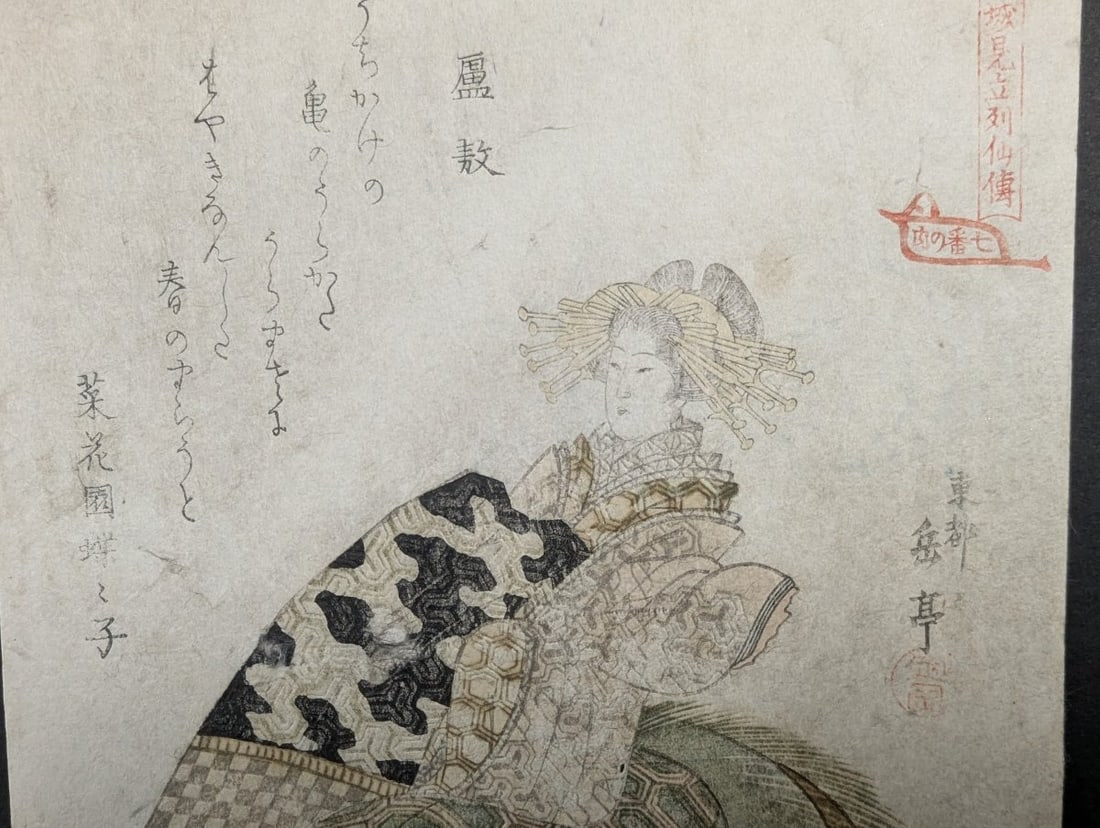 城見立列仙傳
七番の内
東都
岳亭
盧敖
うちかけの
亀のうらかた
うらまさに
はやきなんした
春のまらうと
菜花園蝶〻子